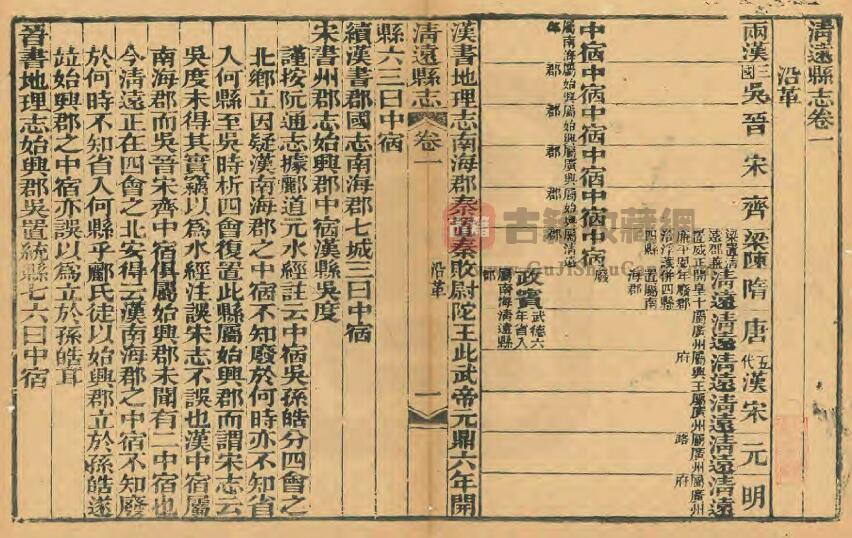 清遠縣志卷一
沿革
兩漢 三國吳 晉 宋 齊 梁陳 隋 唐 五代漢 宋 元 明
清遠 清遠 清遠 清遠 清遠 清遠
屬廣州 屬興王府 屬廣州 屬廣州路 屬廣州府
中宿 中宿 中宿 中宿 中宿 中宿 廢
屬南海郡 屬始興郡 屬始興郡 屬廣興郡 屬始興郡 屬清遠
政賓 武德六年省入清遠縣
屬南海郡
漢書地理志南海郡秦置秦敗尉陀王此武帝元鼎六年開
清遠縣志 卷一 沿革 一
縣六三曰中宿
續漢書郡國志南海郡七城三曰中宿
宋書州郡志始興郡中宿漢縣吳度
謹按阮通志據酈道元水經註云中宿吳孫皓分四會之
北鄉立因疑漢南海郡之中宿不知廢於何時亦不知省
入何縣至吳時析四會復置此縣屬始興郡而謂宋志云
吳度未得其實竊以為水經注誤宋志不誤也漢中宿屬
南海郡而吳晉宋齊中宿俱屬始興郡未聞有二中宿也
今清遠正在四會之北安得云漢南海郡之中宿不知廢
於何時不知省入何縣乎酈氏徒以始興郡立於孫皓遂
竝始興郡之中宿亦誤以為立於孫皓耳
晉書地理志始興郡吳置統縣七六曰中宿
古籍收藏網
GuJiShuCang